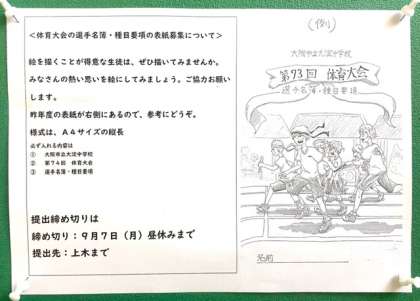 ＜体育大会の選手名簿・種目要項の表紙募集について＞
絵を描くことが得意な生徒は、ぜひ描いてみませんか。
みなさんの熱い思いを絵にしてみましょう。ご協力お願い
します。
昨年度の表紙が右側にあるので、参考にどうぞ。
様式は、Ａ４サイズの縦長
必ず入れる内容は
① 大阪市立大淀中学校
② 第７４回 体育大会
③ 選手名簿・種目要項
提出締め切りは
締め切り：９月７日（月）昼休みまで
提出先：上木まで
（例）
大阪市立大淀中学校
第73回 体育大会
選手名簿・種目要項
名前